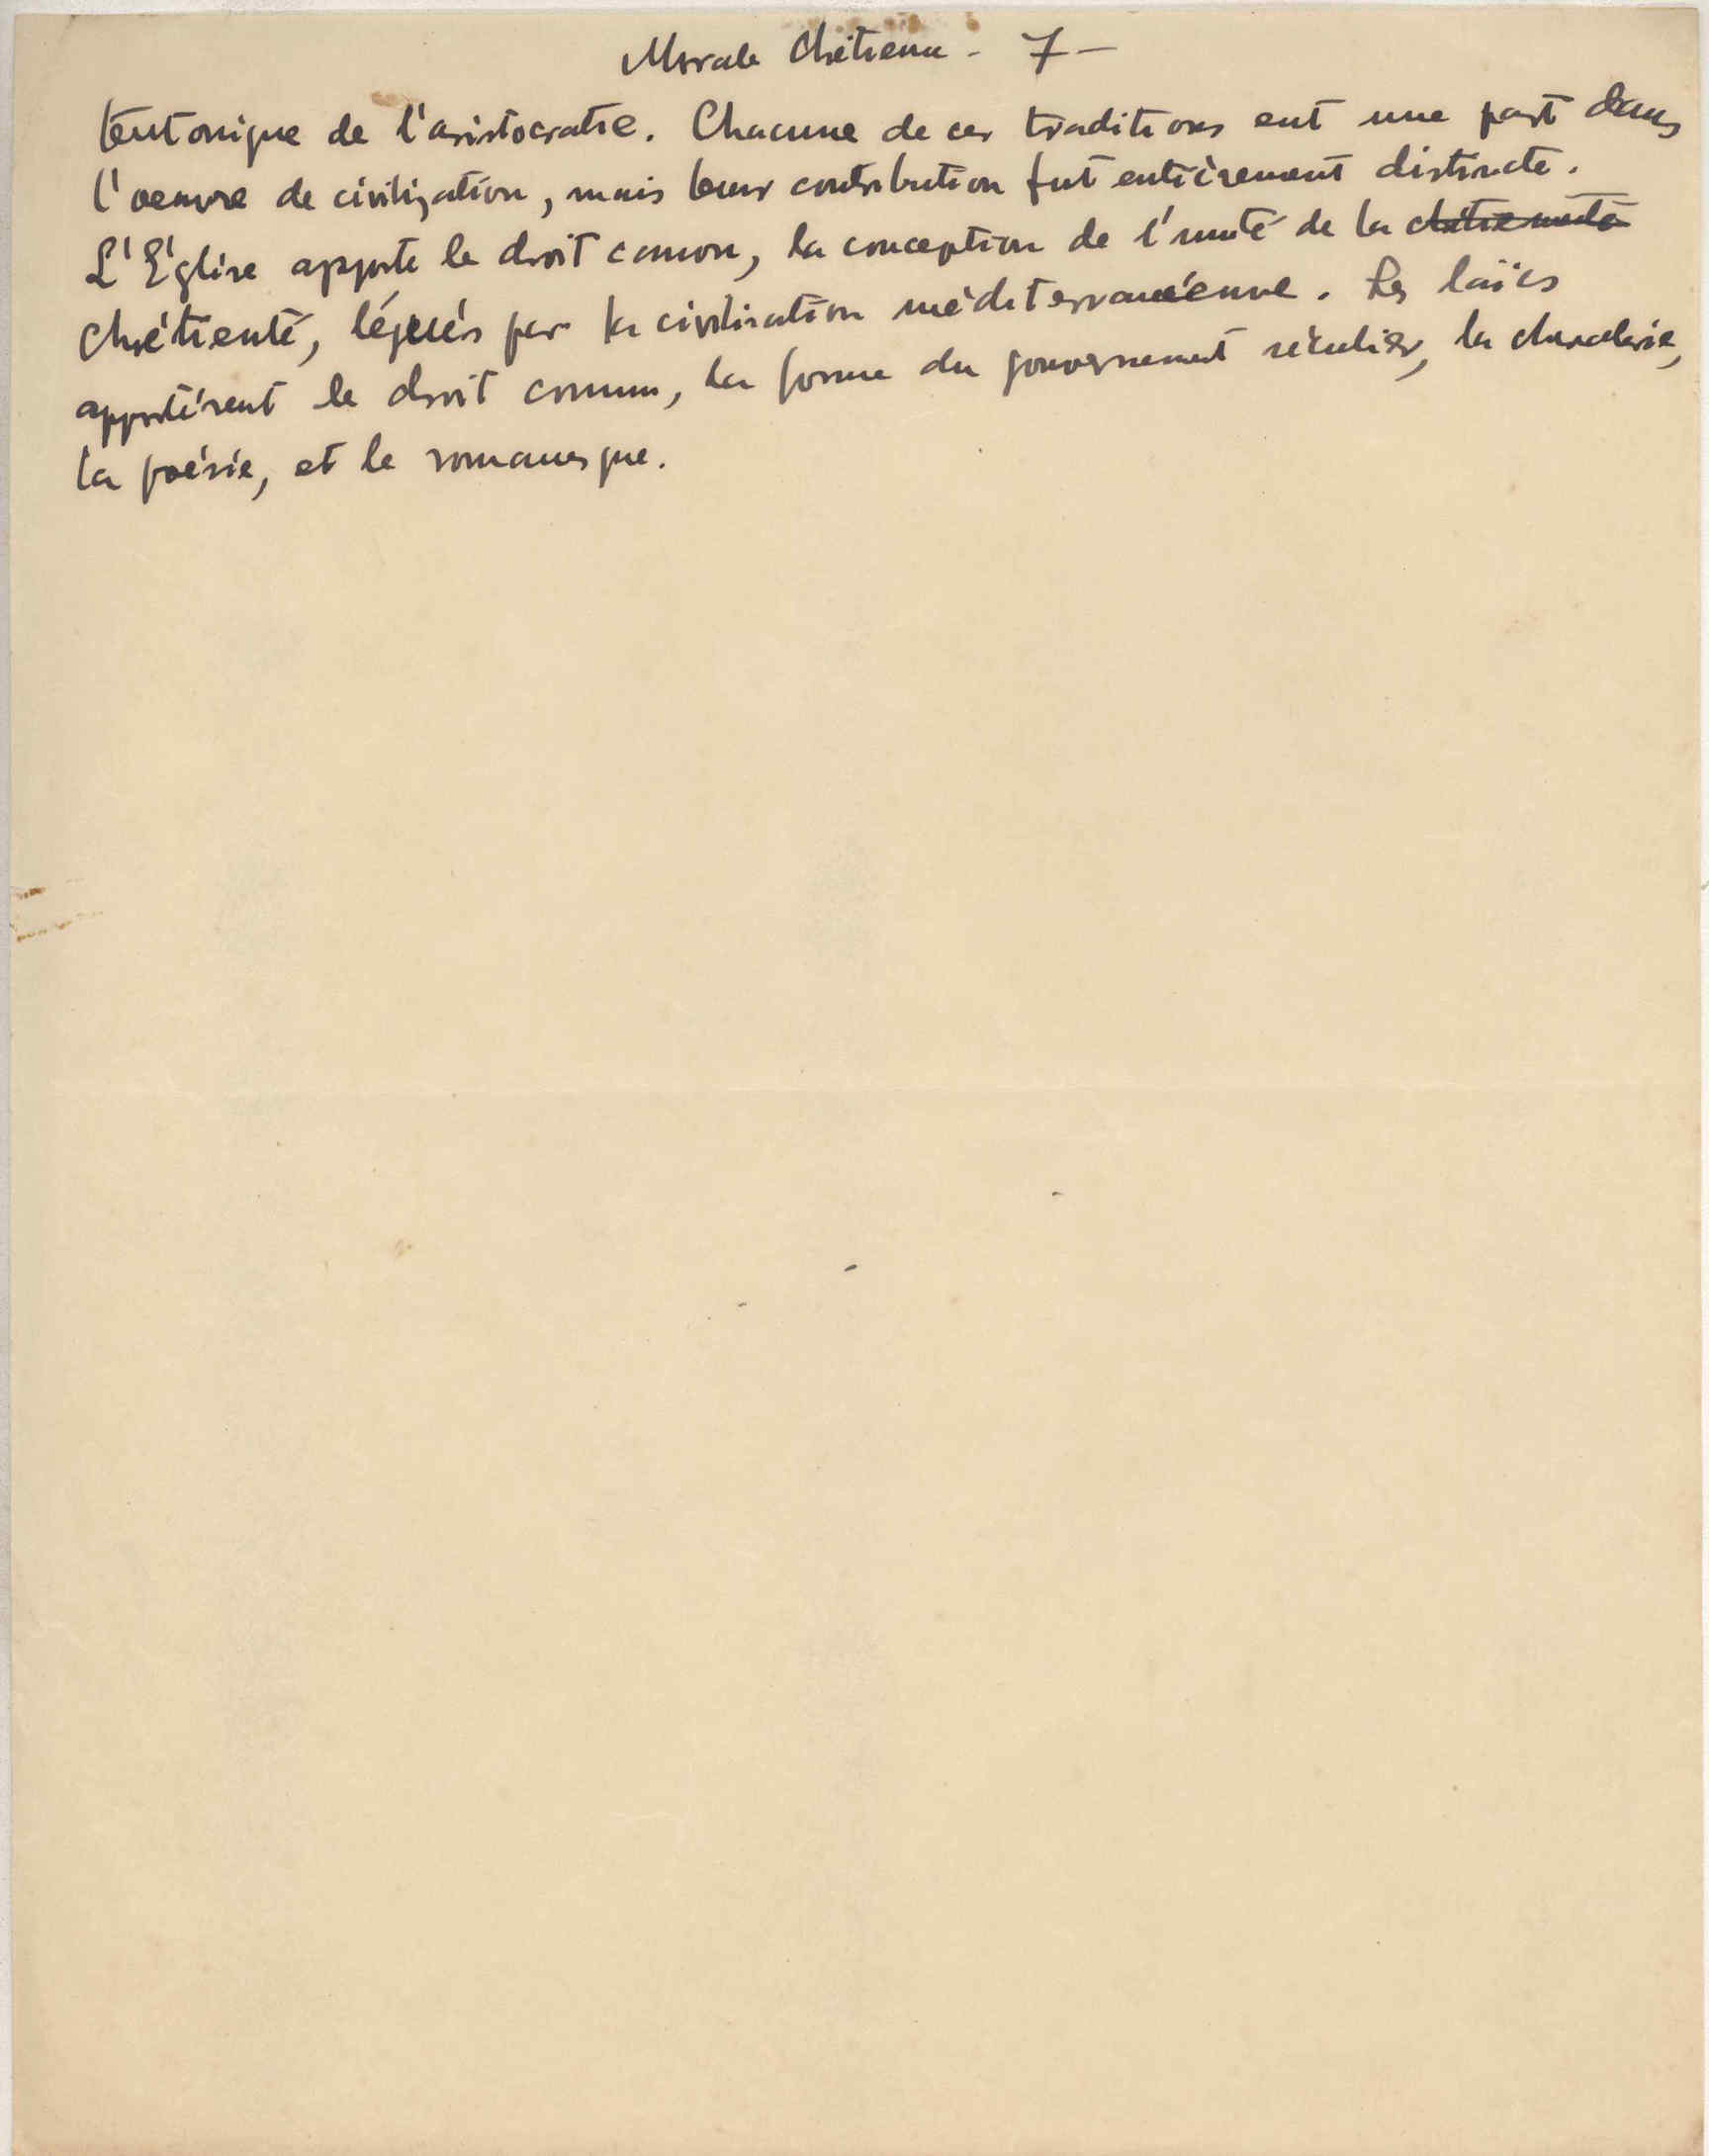 Morale Chrétienne - 7 -
teutonique de l'aristocratie. Chacune de ces traditions eut une part dans
l'oeuvre de civilization, mais leur contribution fut entièrement distincte.
L'Église apporte le droit canon, la conception de l'unité de la chrétienneté
Chrétienté, légués par la civilisation méditerranéenne. Les laïcs
apportèrent le droit commun, la forme du gouvernement séculier, la chevalerie,
la poésie, et le romanesque.